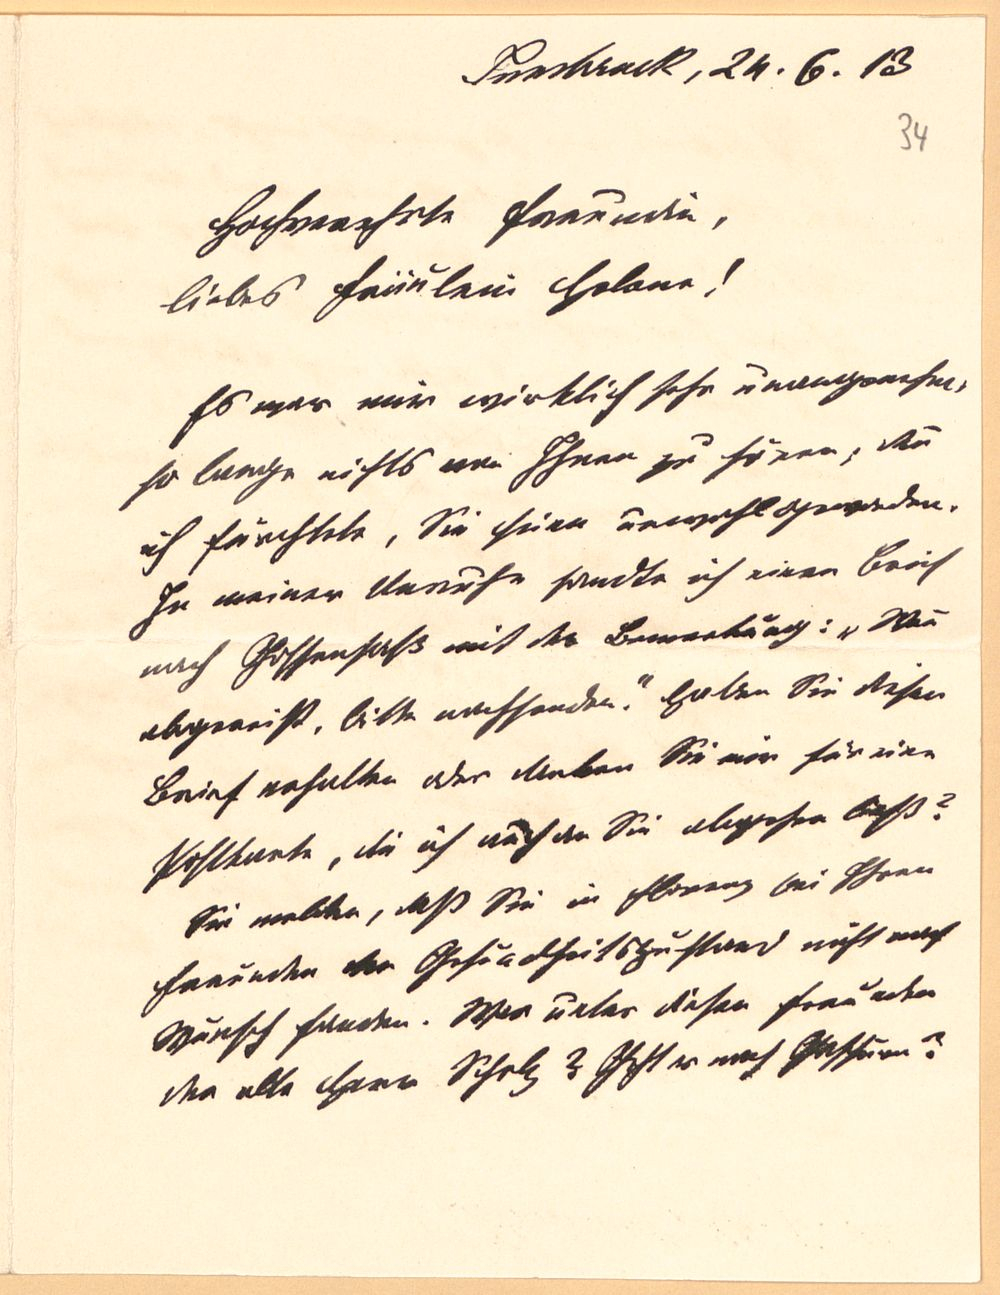 Innsbruck, 24. 6. 13
34
Hochverehrte Freundin,
liebes Fräulein Helene!
Es war mir wirklich sehr unangenehm,
so lange nichts von Ihnen zu hören; da
ich fürchtete, Sie seien unwohl geworden.
In meiner Unruhe sandte ich einen Brief
nach Gossensaß mit der Bemerkung: „Wenn
abgereist, bitte nachsenden." Haben Sie diesen
Brief erhalten oder danken Sie mir für eine
Postkarte, die ich auch an Sie abgehen ließ?
Sie melden, daß Sie in Florenz bei Ihren
Freunden den Gesundheitszustand nicht nach
Wunsch fanden. War unter diesen Freunden
der alte Herr Scholz? Geht er nach Gastein?